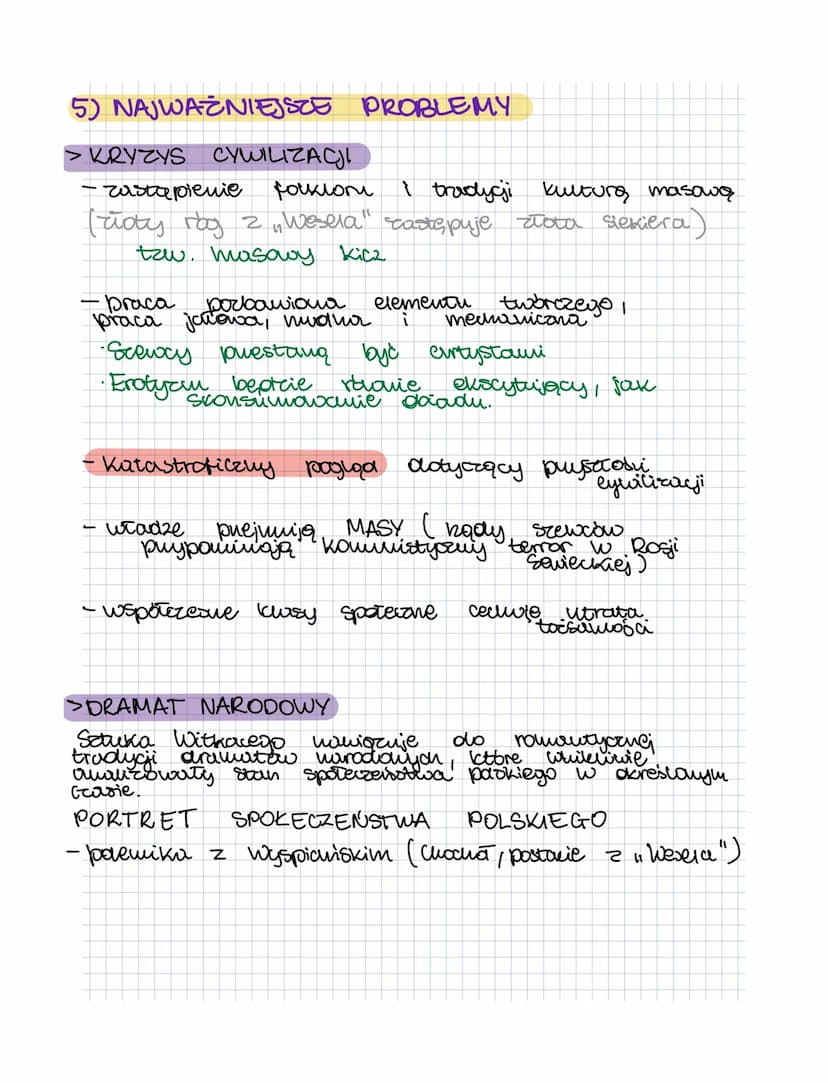 5) NAJWAŻNIEJSZE PROBLEMY
> KRYZYS CYWILIZACJI
- zastąpienie folkloru i tradycji kulturą masową
(złoty róg z „Wesela" zastępuje złota siekiera)
tzw. masowy kicz
- praca pozbawiona elementu twórczego,
praca jałowa, nudna i mechaniczna
· Szewcy przestaną być artystami
· Erotyzm będzie równie ekscytujący, jak
skonsumowanie obiadu.
- Katastroficzny pogląd dotyczący przyszłości
cywilizacji
- władzę przejmują MASY (rządy szewców
przypominają komunistyczny terror w Rosji
Sowieckiej)
- współczesne klasy społeczne cechuje utrata
tożsamości
> DRAMAT NARODOWY
Sztuka Witkacego nawiązuje do romantycznej
tradycji dramatów narodowych, które wnikliwie
analizowały stan społeczeństwa polskiego w określonym
czasie.
PORTRET SPOŁECZEŃSTWA POLSKIEGO
- polemika z Wyspiańskim (Chochoł, postacie z „Wesela")